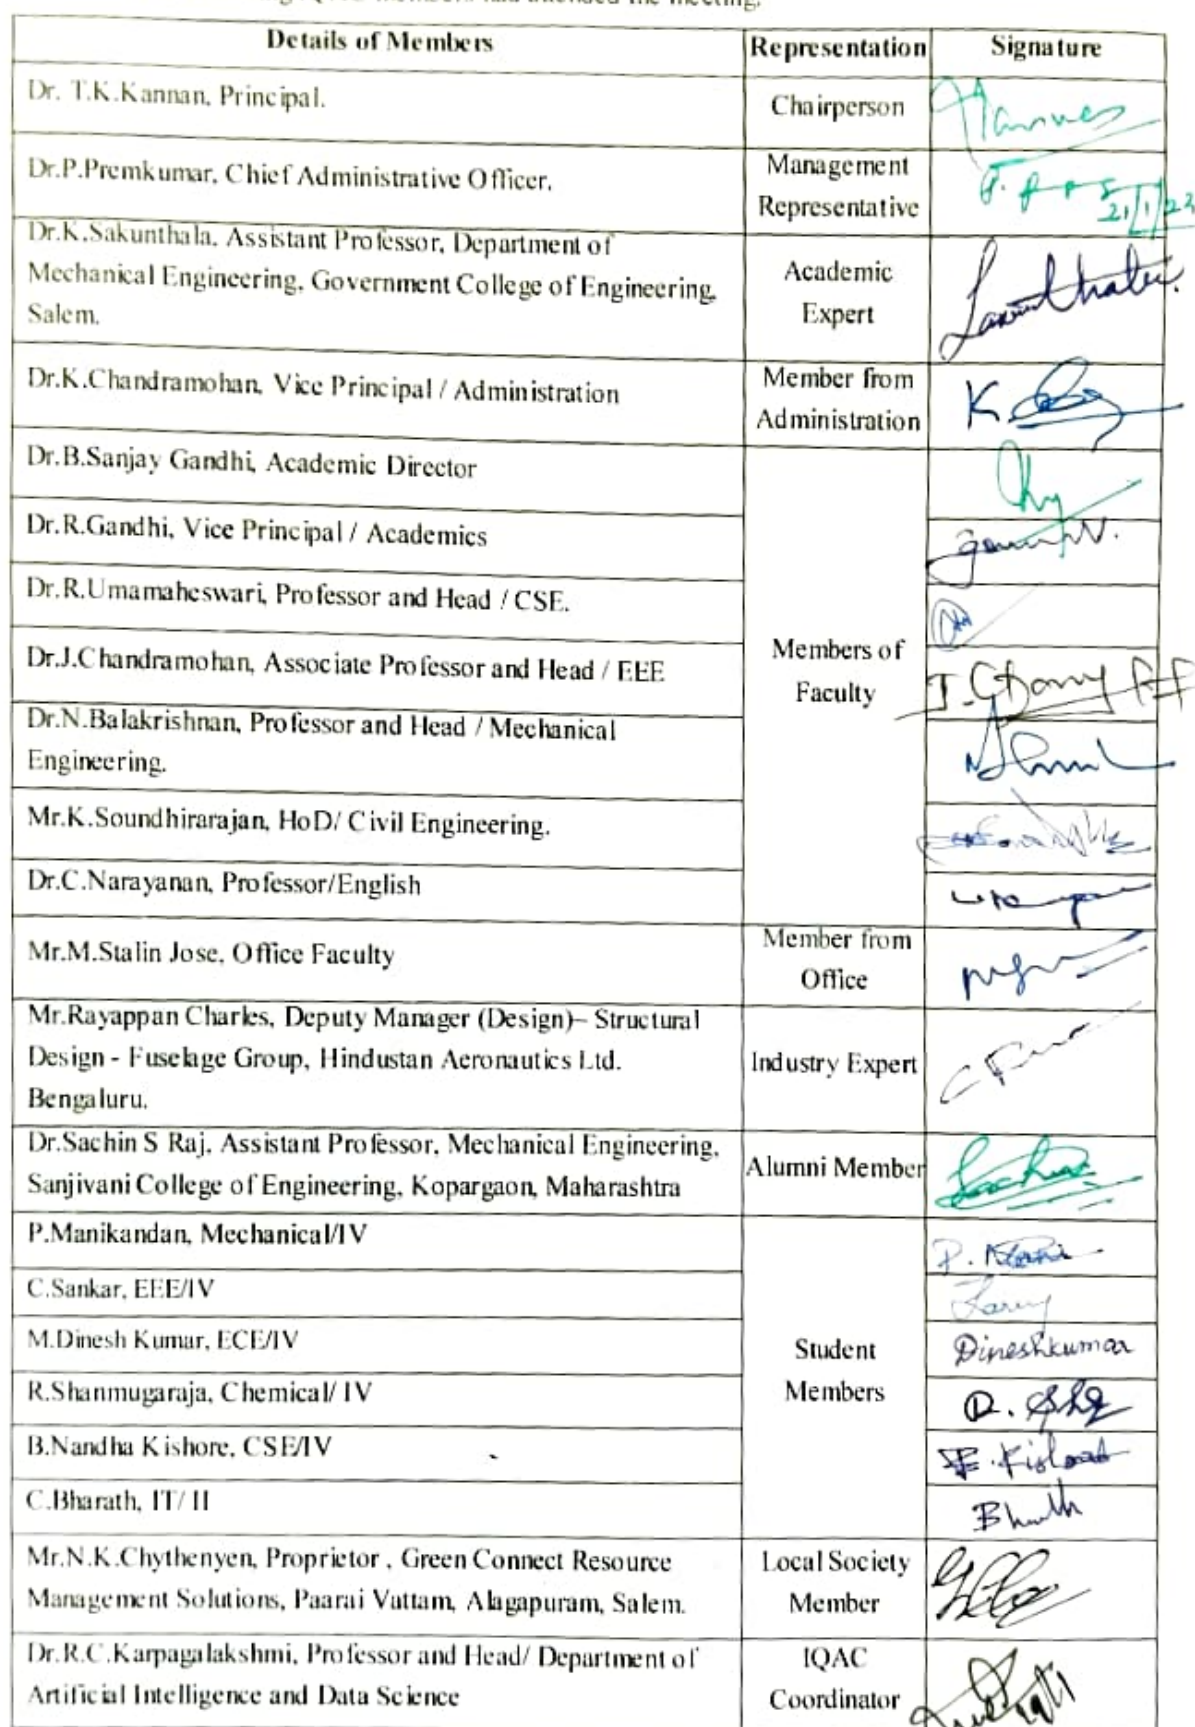 members had attended the meeting.
Details of Members Representation Signature
Dr. T.K.Kannan, Principal. Chairperson
Dr.P.Premkumar, Chief Administrative Officer. Management
Representative
21/1/23
Dr.K.Sakunthala, Assistant Professor, Department of
Mechanical Engineering, Government College of Engineering,
Salem.
Academic
Expert
Dr.K.Chandramohan, Vice Principal / Administration
Member from
Administration
K.
Dr.B.Sanjay Gandhi, Academic Director
Dr.R.Gandhi, Vice Principal / Academics
Dr.R.Umamaheswari, Professor and Head / CSE.
Dr.J.Chandramohan, Associate Professor and Head / EEE
Dr.N.Balakrishnan, Professor and Head / Mechanical
Engineering.
Mr.K.Soundhirarajan, HoD/ Civil Engineering.
Dr.C.Narayanan, Professor/English
Members of
Faculty
Mr.M.Stalin Jose, Office Faculty
Member from
Office
Mr.Rayappan Charles, Deputy Manager (Design)– Structural
Design - Fuselage Group, Hindustan Aeronautics Ltd.
Bengaluru.
Industry Expert
Dr.Sachin S Raj, Assistant Professor, Mechanical Engineering,
Sanjivani College of Engineering, Kopargaon, Maharashtra
Alumni Member
P.Manikandan, Mechanical/IV
P. Mani
C.Sankar, EEE/IV
M.Dinesh Kumar, ECE/IV
Dineshkumar
R.Shanmugaraja, Chemical/ IV
B.Nandha Kishore, CSE/IV
C.Bharath, IT/ II
Student
Members
Mr.N.K.Chythenyen, Proprietor , Green Connect Resource
Management Solutions, Paarai Vattam, Alagapuram, Salem.
Local Society
Member
Dr.R.C.Karpagalakshmi, Professor and Head/ Department of
Artificial Intelligence and Data Science
IQAC
Coordinator